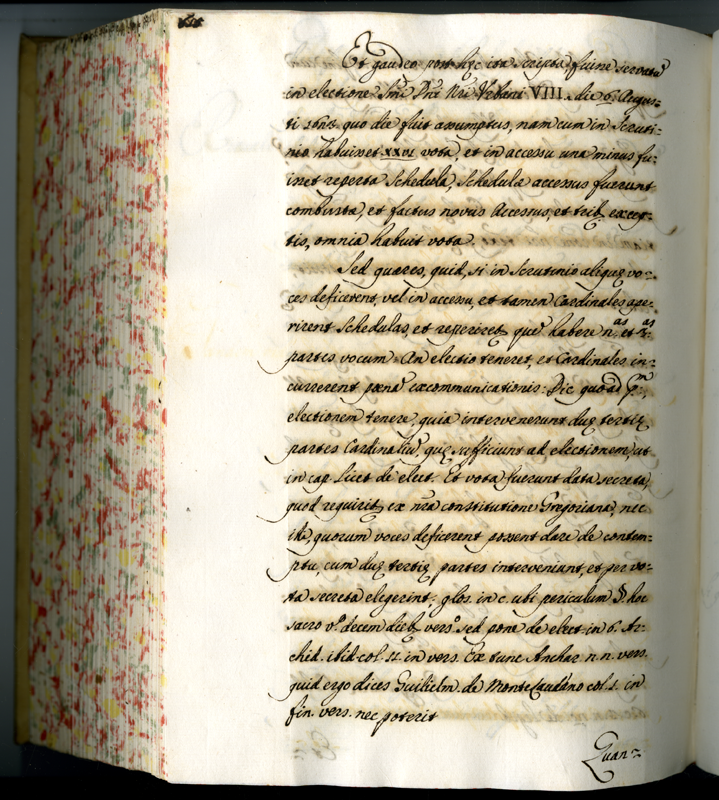 Et gaudeo post hęc ita scripta fuisse servatũ
in electione Smi Dni Nri Urbani VIII. die 6. Augus-
ti 1623. quo die fuit assumptus, nam cum in Scruti-
nio habuisset XXVI vota, et in accessu una minus fu-
isset reperta Schedula, Schedulæ accessus fuerunt
combustæ, et factus novus Accessus, et trib. excep-
tis, omnia habuit vota.
Sed quæres, quid, si in Scrutinio aliquę vo-
ces deficerent, vel in accessu, et tamen Cardinales ape-
rirent Schedulas, et reperiret quẽ habere
partes vocum: An electio teneret, et Cardinales in-
currerent pœnã excommunicationis: Dic quoad
electionem tenere, quia intervenerunt duę tertię
partes Cardinaliũ, quę sufficiunt ad electionem, ut
in cap. Licet de elect. Et vota fuerunt data secreta,
quod requirit ex nra constitutione Gregoriana, nec
illi, quorum voces deficerent possent dare de contem-
ptu, cum duę tertię partes interveniant, et per vo-
ta secreta elegerint, glos. in c. ubi periculum § hoc
sacro vo. decem dieb. verso. sed pone de elect. in 6. Ar-
chid. ibid. col. 11. in vers. Ex tunc Anchar. n.n. vers.
quid ergo dices Guilielm. de Montelaudino col. 1. in
fin. vers. nec poterit
Quan-